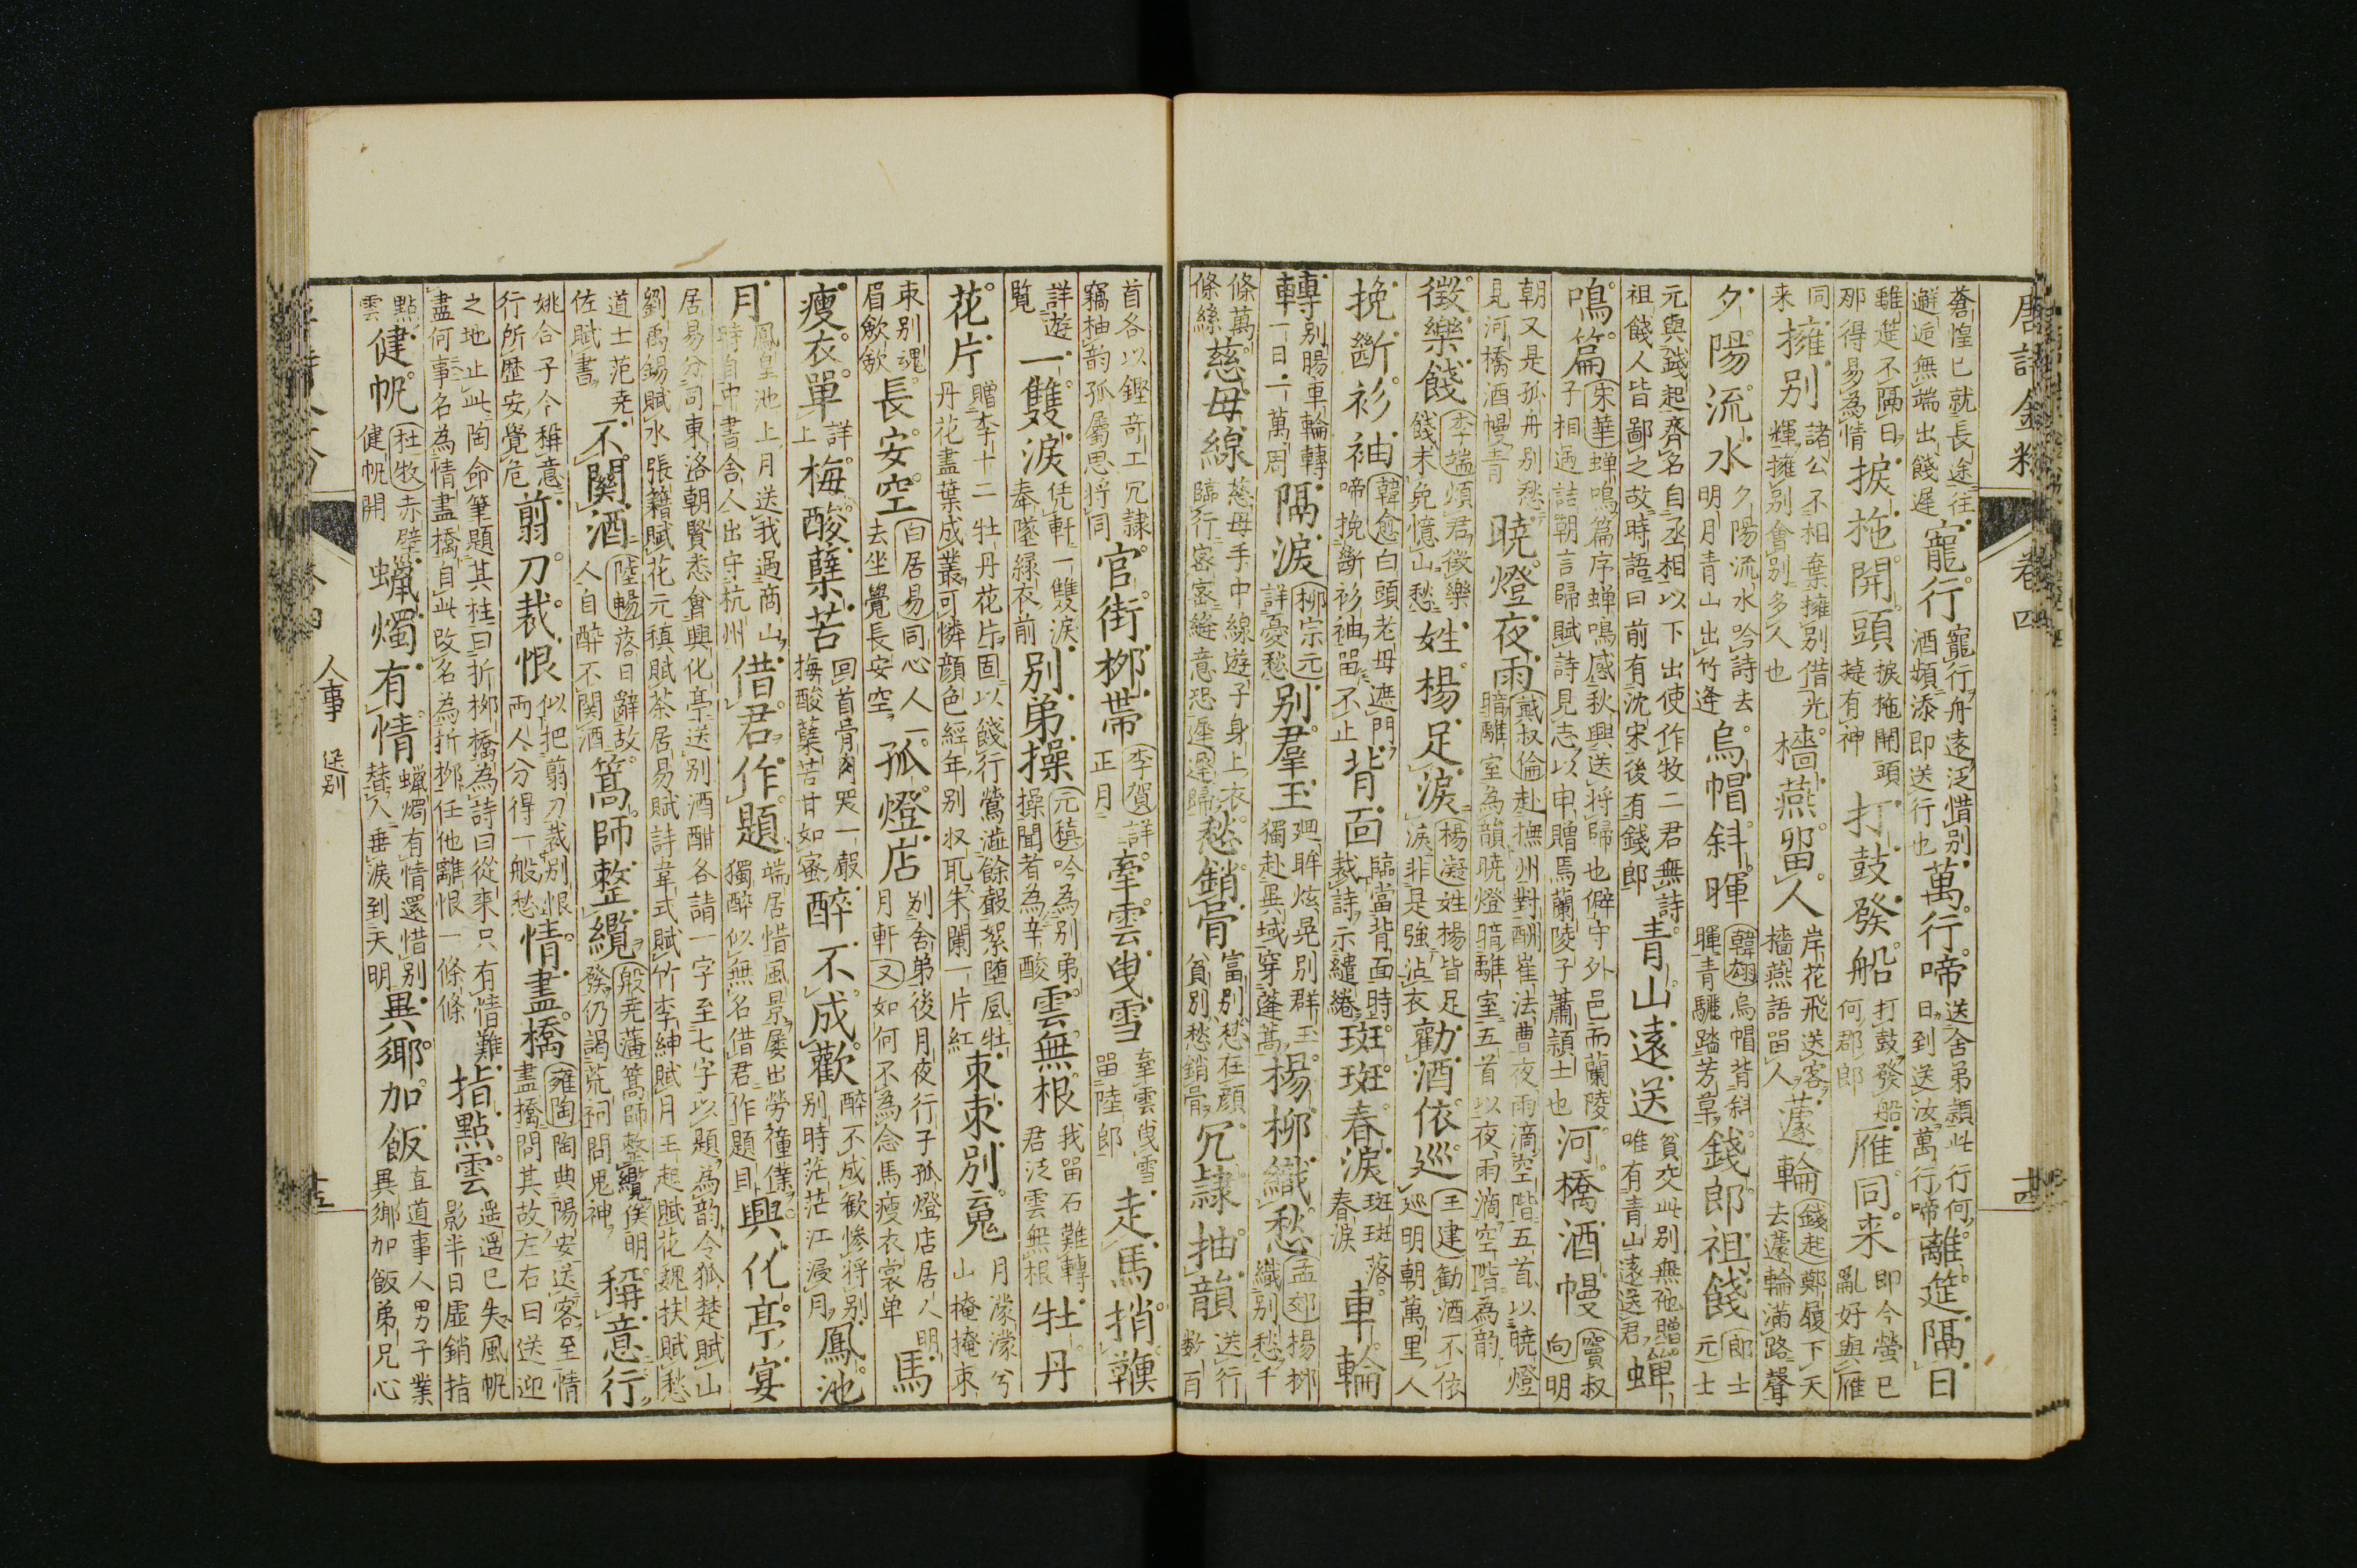 唐詩金粉 卷四 十四
蒼惶已就長途往邂逅無端出餞遲 寵行 寵行舟遠泛惜別酒頻添即送行也 萬行啼 送舍弟頴此行何日到送汝萬行啼 離筵隔日
離筵不隔日那得易為情 捩柂開頭 捩柂開頭㨗有神 打鼓發船 打鼓發船何郡郎 雁同来 即今螢已亂好與雁
同来 擁別 諸公不相棄擁別借光輝擁別會別多久也 檣燕畱人 岸花飛送客檣燕語畱人 蘧輪 錢起鄭履下天去蘧輪滿路聲
夕陽流水 夕陽流水吟詩去明月青山出竹逢 烏帽斜暉 韓翃烏帽背斜暉青驪踏芳草 錢郎祖餞 郎士元士
元與錢起齊名自丞相以下出使作牧二君無詩祖餞人皆鄙之故時語曰前有沈宋後有錢郎 青山遠送 貧交此別無他贈唯有青山遠送君 蟬
鳴篇 宋華蟬鳴篇序蟬鳴感秋興送將歸也僻守外邑而蘭陵子相過詰朝言歸賦詩見志以申贈焉蘭陵子蕭頴士也 河橋酒幔 竇叔向明
朝又是孤舟別愁見河橋酒幔青 曉燈夜雨 戴叔倫赴撫州對酬崔法曹夜雨滴空階五首以曉燈暗離室為韻曉燈暗離室五首以夜雨滴空階為韻
徵樂餞 李端煩君徵樂餞未免憶山愁 姓楊足淚 楊凝姓楊皆足淚非是強沾衣 勸酒依巡 王建勸酒不依巡明朝萬里人
挽斷衫袖 韓愈白頭老母遮門啼挽斷衫袖畱不止 背面 臨當背面時裁詩示繾綣 斑斑春淚 斑斑落春淚 車輪
轉 別腸車輪轉一日一萬周 隔淚 柳宗元詳憂愁 別羣玉 廻眸炫晃別群玉獨赴異域穿蓬蒿 楊柳織愁 孟郊楊柳織別愁千
條萬條絲 慈母線 慈母手中線遊子身上衣臨行密密縫意恐遲遲歸 愁銷骨 富別愁在顔貧別愁銷骨 冗隸抽韻 送行数百
首各以鏗竒工冗隸竊柚韵孤屬思將同 官街桞帶 李賀詳正月 牽雲曳雪 牽雲曳雪畱陸郎 走馬捎鞭
詳遊覧 一雙淚 凭軒一雙淚奉墜緑衣前 別弟操 元稹吟為別弟操聞者為辛酸 雲無根 我畱石難轉君泛雲無根 牡丹
花片 贈李十二牡丹花片因以餞行鶯澁餘聲絮堕風牡丹花盡葉成叢可憐顔色經年別収取朱闌一片紅 束束別䰟 月濛濛兮山掩掩束
束別魂眉歛歛 長安空 白居易同心人一去坐覺長安空 孤燈店 別舍弟後月夜行子孤燈店居人明月軒又如何不為念馬瘦衣裳单 馬
瘦衣單 詳上 梅酸蘗苦 回首骨肉哭一聲梅酸蘗苦甘如蜜 醉不成歡 醉不成歓惨將別別時茫茫江浸月 鳳池
月 鳳皇池上月送我過商山時自中書舍人出守杭州 借君作題 端居惜風景屢出勞僮僕獨醉似無名借君作題目 興化亭宴
居易分司東洛朝賢悉會興化亭送別酒酣各請一字至七字以題為韵令狐楚賦山劉禹錫賦水張籍賦花元稹賦茶居易賦詩韋式賦竹李紳賦月王起賦花魏扶賦愁
道士范尭佐賦書 不關酒 陸暢落日辭故人自醉不関酒 篙師整纜 殷尭藩篙師整纜俟明發仍謁荒祠問鬼神 稱意行
姚合子今稱意行所歴安覺危 翦刀裁恨 似把翦刀裁別恨兩人分得一般愁 情盡橋 雍陶陶典陽安送客至情盡橋問其故左右曰送迎
之地止此陶命筆題其柱曰折桞橋為詩曰從來只有情難盡何事名為情盡橋自此改名為折桞任他離恨一條條 指點雲 遥遥已失風帆影半日虛銷指
點雲 健帆 杜牧赤壁健帆開 蠟燭有情 蠟燭有情還惜別替人垂淚到天明 異鄉加飯 直道事人男子業異鄉加飯弟兄心
人事 送別